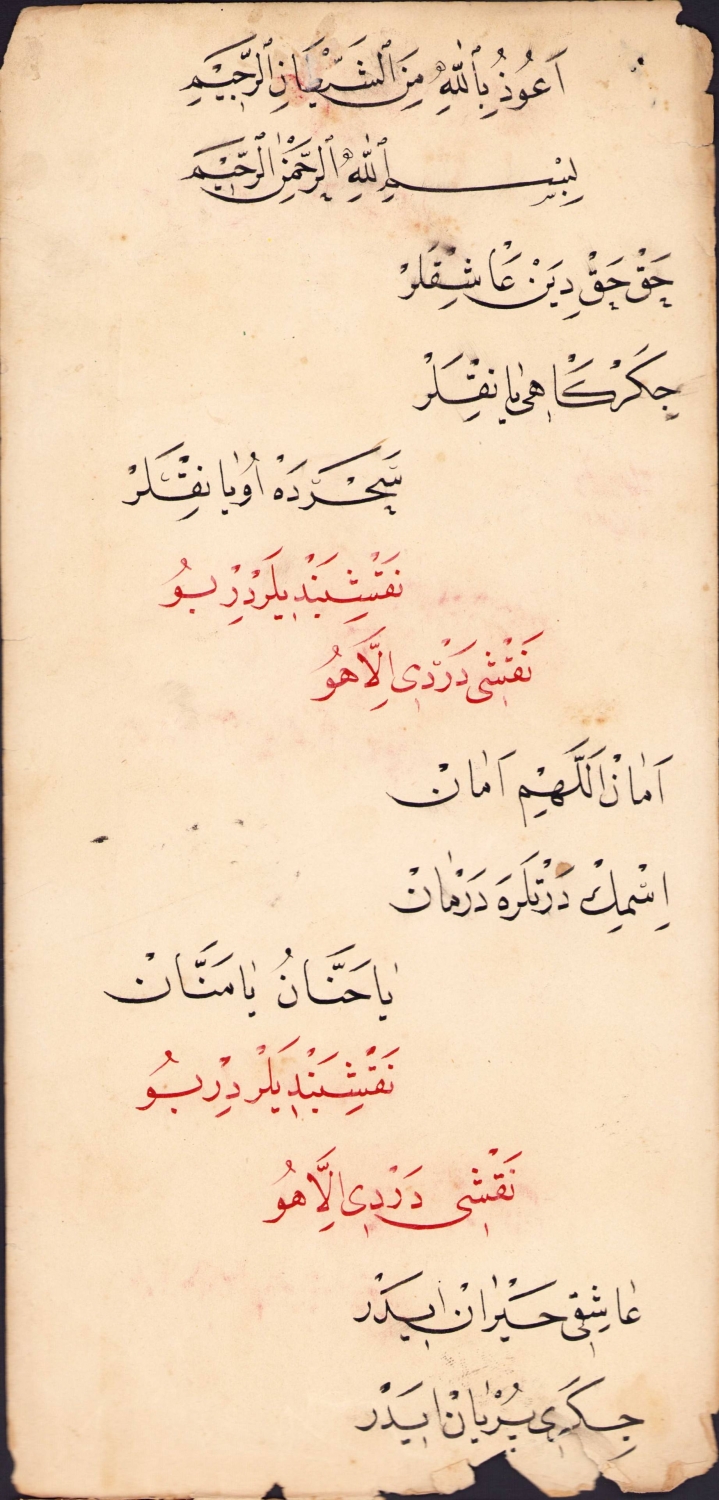 اَعُوذُ بِٱللّٰهِ مِنَ ٱلشَّيْطَانِ ٱلرَّجِيمِ
بِسْمِ ٱللّٰهِ ٱلرَّحْمٰنِ ٱلرَّحِيمِ
حَقْ حَقْ دِيَنْ عَاشِقَلَرْ
جِكَرْ كَاهِى يَانِقْلَرْ
سَحَرْدَه اُويَانِقْلَرْ
نَقْشِبَنْدِيلَرْدِرْ بُو
نَقْشِى دَرْدِى اِلَّا هُو
اَمَانْ اَللّٰهِمْ اَمَانْ
اِسْمِكْ دَرْتْلَرَه دَرْمَانْ
يَا حَنَّانُ يَا مَنَّانْ
نَقْشِبَنْدِيلَرْدِرْ بُو
نَقْشِى دَرْدِى اِلَّا هُو
عَاشِقِى حَيْرَانْ ايدَرْ
جِكَرِى بُرْيَانْ ايدَرْ